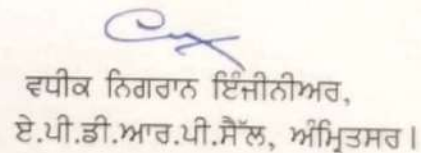 ਵਧੀਕ ਨਿਗਰਾਨ ਇੰਜੀਨੀਅਰ,
ਏ.ਪੀ.ਡੀ.ਆਰ.ਪੀ.ਸੈੱਲ, ਅੰਮ੍ਰਿਤਸਰ।